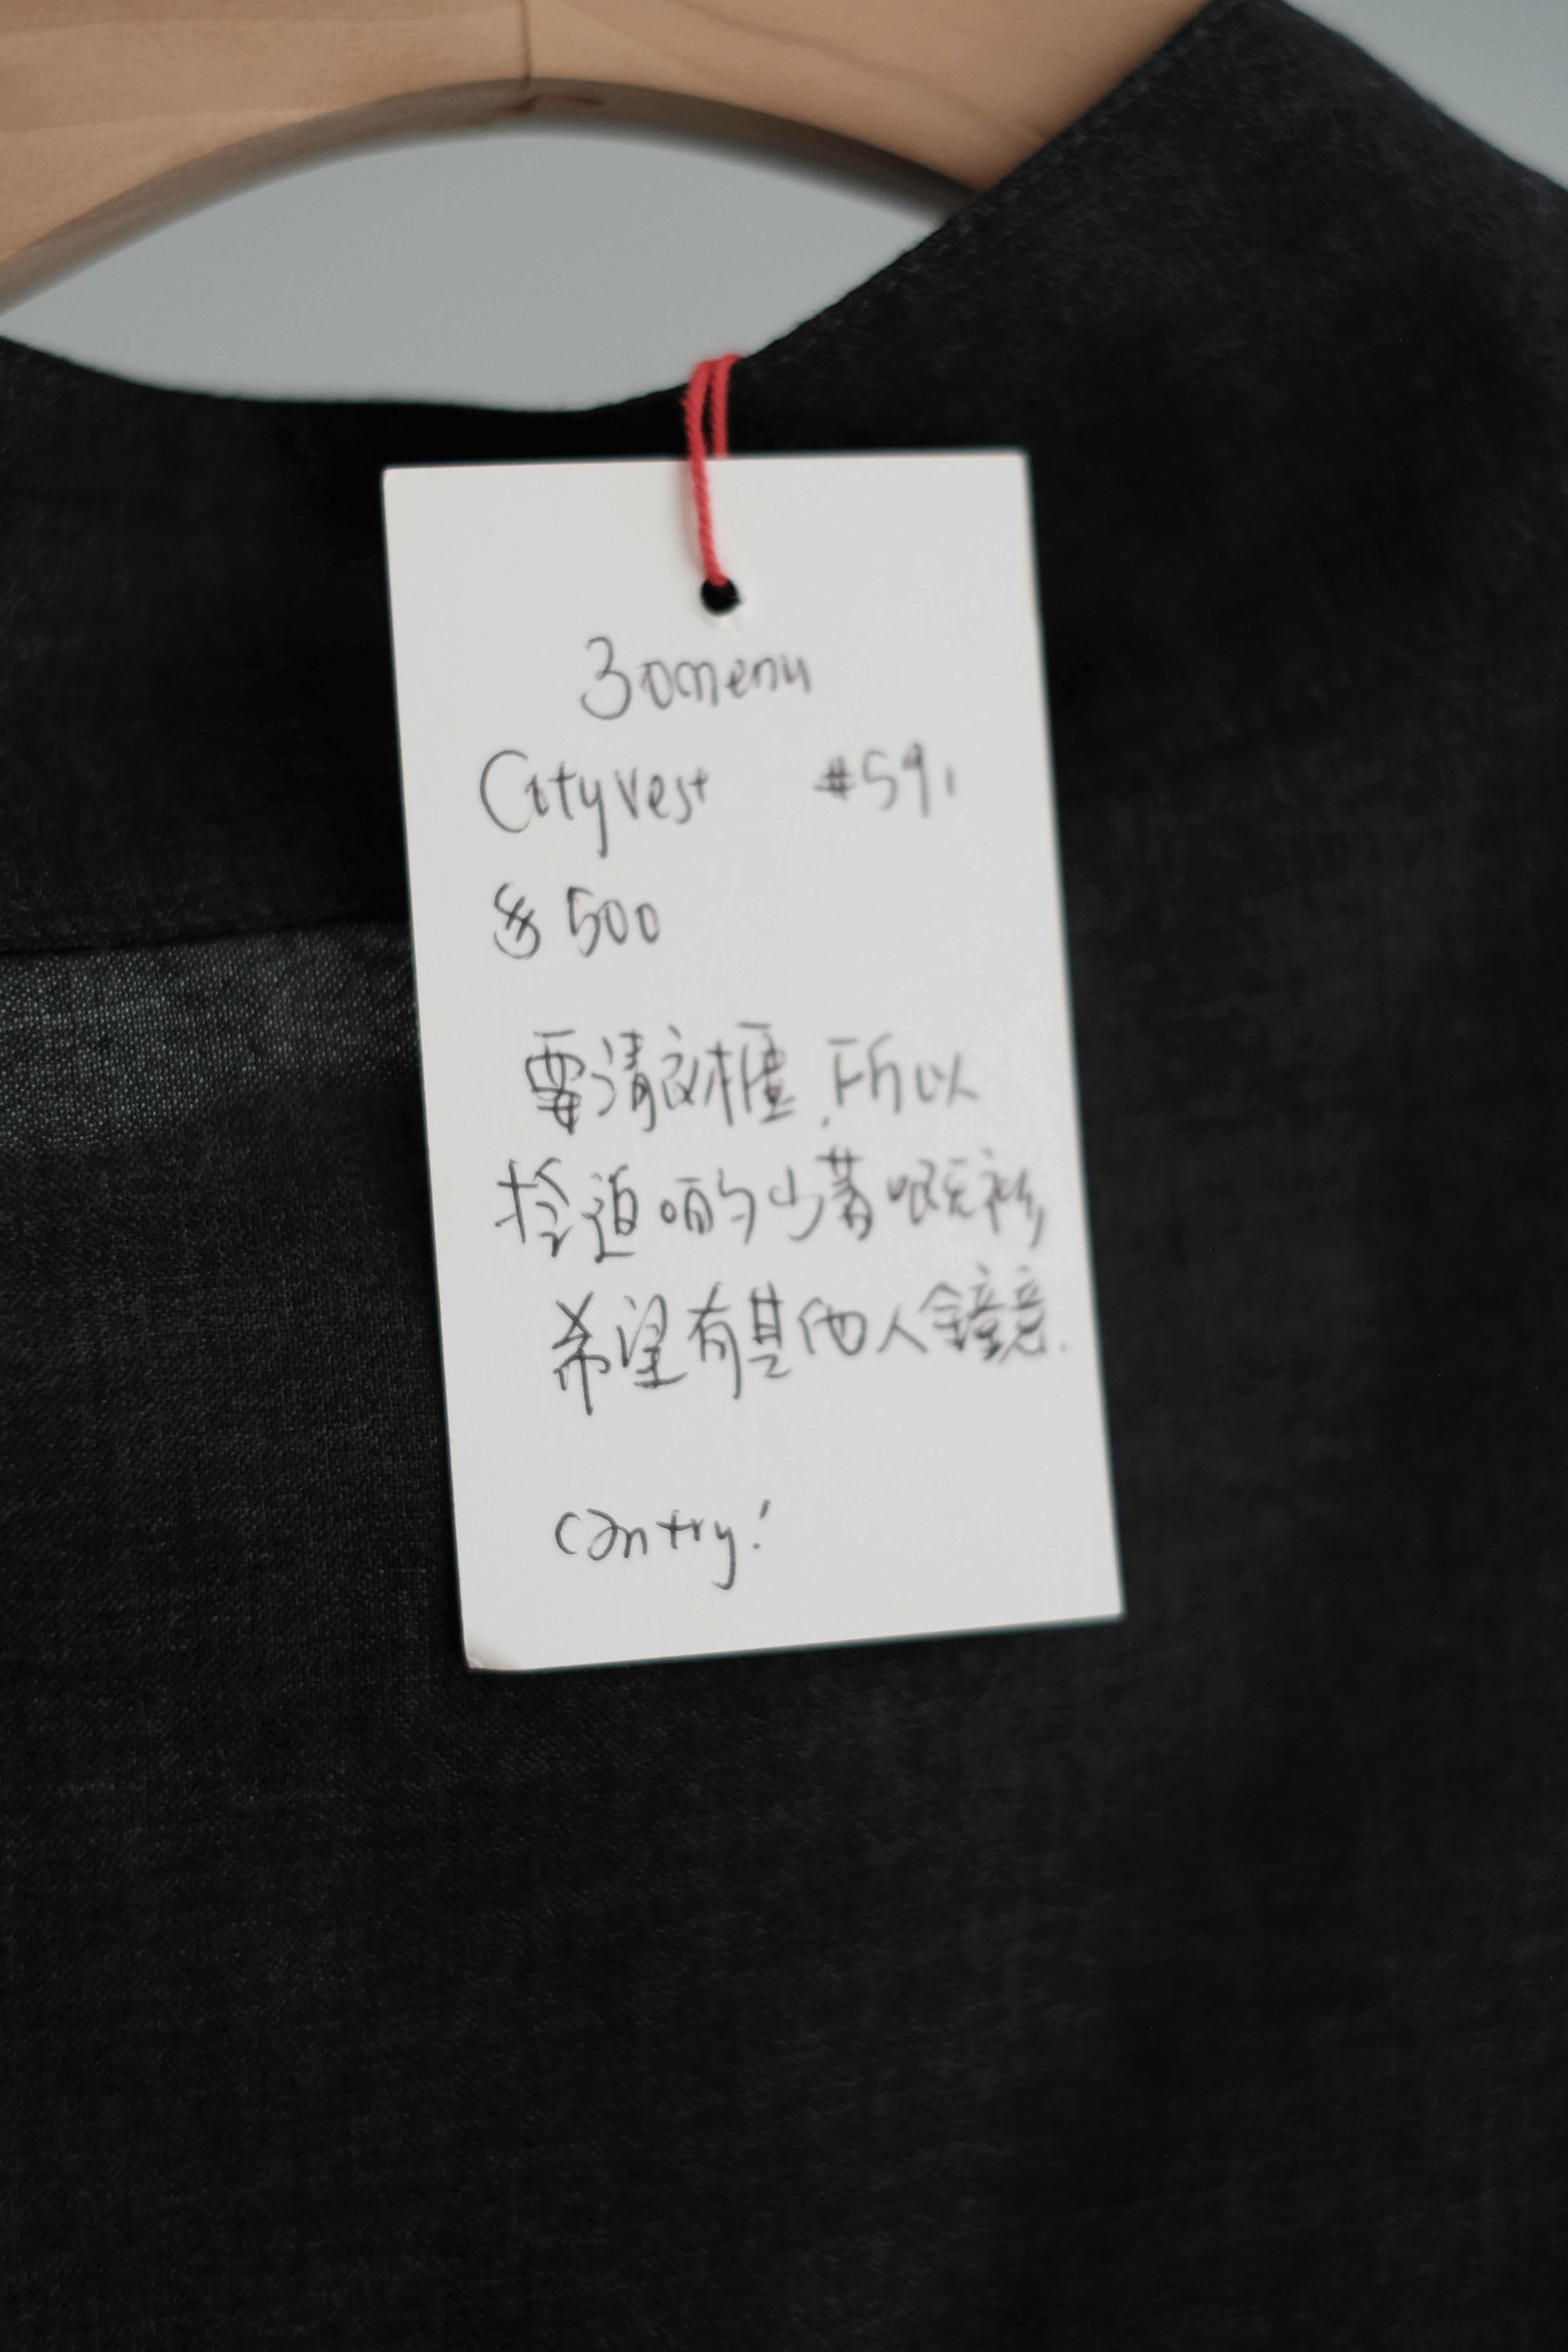 30menu
City vest #591
$500
要清衣櫃,所以
拎返啲少著嘅衫
希望有其他人鐘意.
can try!